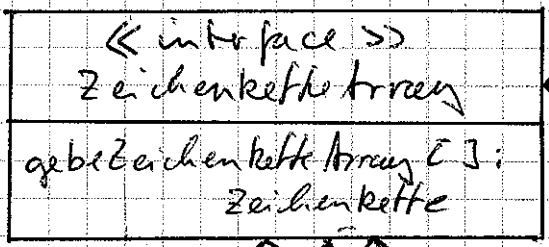 << interface >>
ZeichenketteArray
gebeZeichenketteArray []:
Zeichenkette